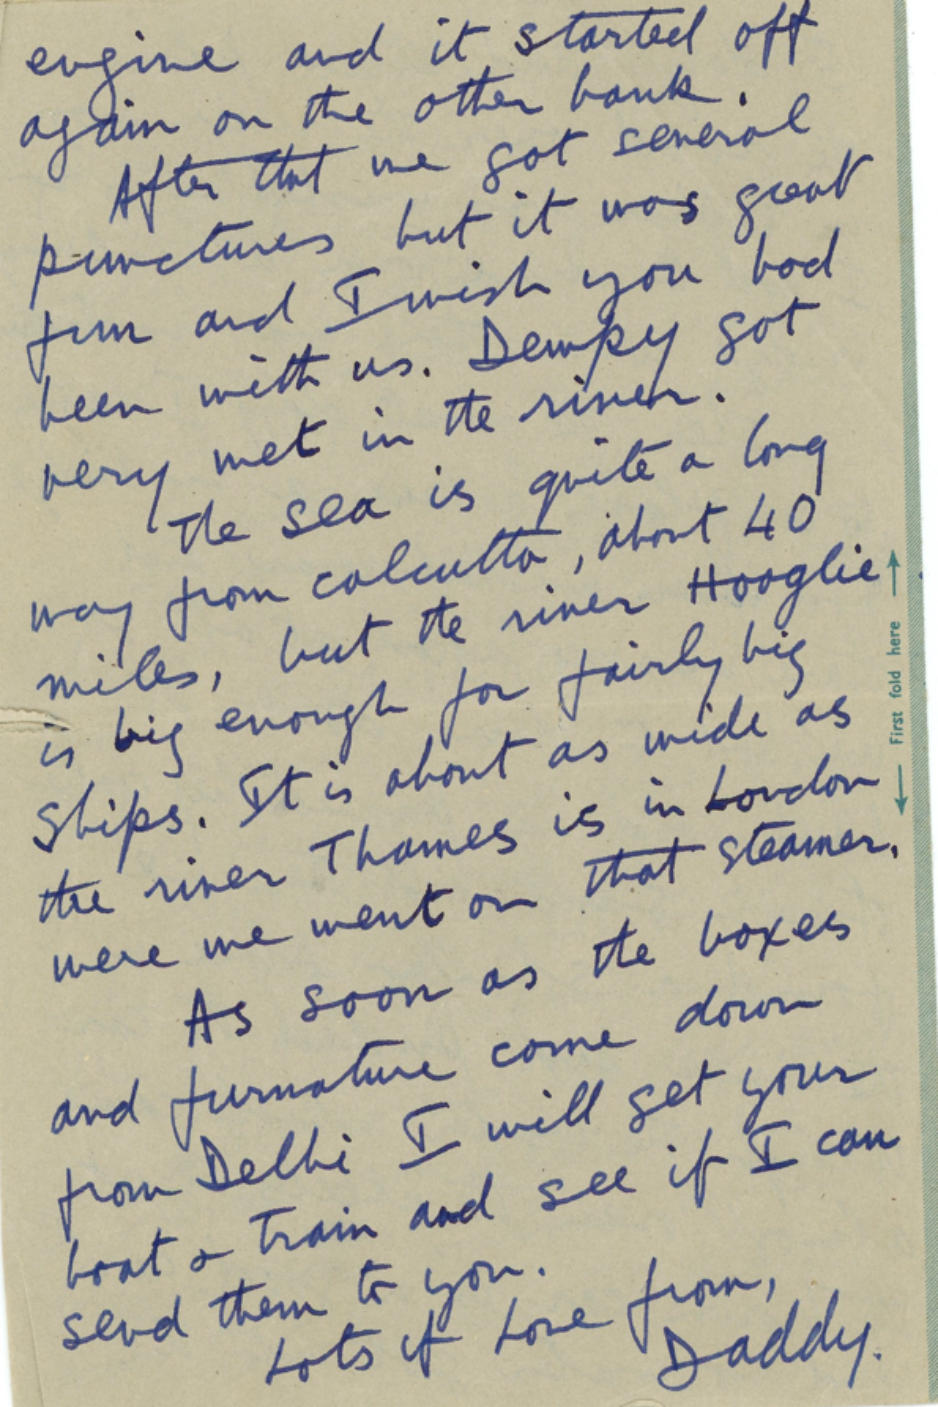 engine and it started off
again on the other bank.
After that we got several
punctures but it was great
fun and I wish you had
been with us. Dempy got
very wet in the river.
The sea is quite a long
way from Calcutta, about 40
miles, but the river Hooglie
is big enough for fairly big
Ships. It is about as wide as
the river Thames is in London
were we went on that steamer.
As soon as the boxes
and furnature come down
from Delhi I will get your
boat & train and see if I can
send them to you.
Lots of Love from,
Daddy.
← First fold here →